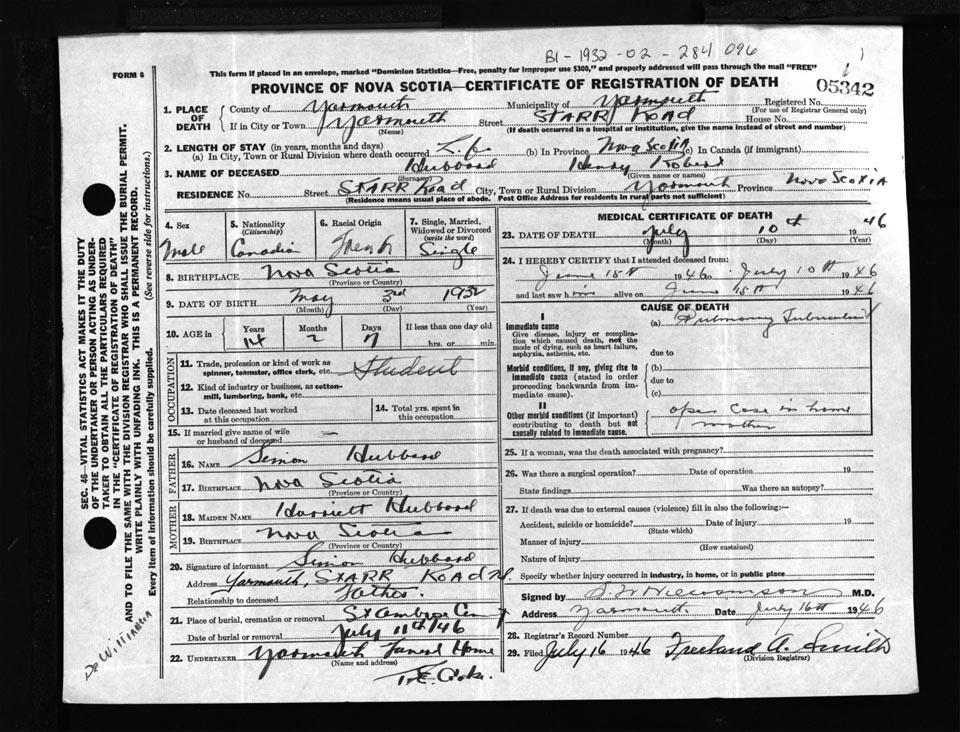 B1-1932-02-284096
FORM 6
This form if placed in an envelope, marked "Dominion Statistics—Free, penalty for improper use $300," and properly addressed will pass through the mail "FREE"
05342
PROVINCE OF NOVA SCOTIA—CERTIFICATE OF REGISTRATION OF DEATH
1. PLACE OF DEATH County of Yarmouth Municipality of Yarmouth Registered No.
(For use of Registrar General only)
If in City or Town Yarmouth Street STARR ROAD House No.
(Name) (If death occurred in a hospital or institution, give the name instead of street and number)
2. LENGTH OF STAY (in years, months and days)
(a) In City, Town or Rural Division where death occurred (b) In Province Nova Scotia (c) In Canada (if immigrant)
3. NAME OF DECEASED Hubbard Henry Robert
(Surname) (Given name or names)
RESIDENCE No. Street STARR Road City, Town or Rural Division Yarmouth Province Nova Scotia
(Residence means usual place of abode. Post Office Address for residents in rural parts not sufficient)
4. Sex Male
5. Nationality (Citizenship) Canadian
6. Racial Origin French
7. Single, Married, Widowed or Divorced (write the word) Single
8. BIRTHPLACE Nova Scotia
(Province or Country)
9. DATE OF BIRTH May 3rd 1932
(Month) (Day) (Year)
10. AGE in Years 14 Months 2 Days 7 If less than one day old hrs. or min.
OCCUPATION
11. Trade, profession or kind of work as spinner, teamster, office clerk, etc. Student
12. Kind of industry or business, as cotton-mill, lumbering, bank, etc.
13. Date deceased last worked at this occupation
14. Total yrs. spent in this occupation
15. If married give name of wife or husband of deceased —
FATHER
16. NAME Simon Hubbard
17. BIRTHPLACE Nova Scotia
(Province or Country)
MOTHER
18. MAIDEN NAME Harriett Hubbard
19. BIRTHPLACE Nova Scotia
(Province or Country)
20. Signature of informant Simon Hubbard
Address Yarmouth, STARR ROAD
Relationship to deceased Father.
21. Place of burial, cremation or removal St Ambrose
Date of burial or removal July 11th/46
22. UNDERTAKER Yarmouth Funeral Home
(Name and address)
MEDICAL CERTIFICATE OF DEATH
23. DATE OF DEATH July 10th 1946
(Month) (Day) (Year)
24. I HEREBY CERTIFY that I attended deceased from:
June 15th 1946 to July 10th 1946
and last saw him alive on June 15th 1946
CAUSE OF DEATH
I
Immediate cause
Give disease, injury or complication which caused death, not the mode of dying, such as heart failure, asphyxia, asthenia, etc.
(a) Pulmonary Tuberculosis
due to
Morbid conditions, if any, giving rise to immediate cause (stated in order proceeding backwards from immediate cause).
(b)
due to
(c)
II
Other morbid conditions (if important) contributing to death but not causally related to immediate cause.
open case in home
mother
25. If a woman, was the death associated with pregnancy?
26. Was there a surgical operation? Date of operation 19
State findings Was there an autopsy?
27. If death was due to external causes (violence) fill in also the following:—
Accident, suicide or homicide? Date of injury 19
(State which)
Manner of injury
(How sustained)
Nature of injury
Specify whether injury occurred in industry, in home, or in public place
Signed by M.D.
Address Yarmouth Date July 16th 1946
28. Registrar's Record Number
29. Filed July 16 1946 Freeland A. Smith
(Division Registrar)
SEC. 46—VITAL STATISTICS ACT MAKES IT THE DUTY
OF THE UNDERTAKER OR PERSON ACTING AS UNDER-
TAKER TO OBTAIN ALL THE PARTICULARS REQUIRED
IN THE "CERTIFICATE OF REGISTRATION OF DEATH"
AND TO FILE THE SAME WITH THE DIVISION REGISTRAR WHO SHALL ISSUE THE BURIAL PERMIT.
WRITE PLAINLY WITH UNFADING INK. THIS IS A PERMANENT RECORD.
Every item of information should be carefully supplied. (See reverse side for instructions.)